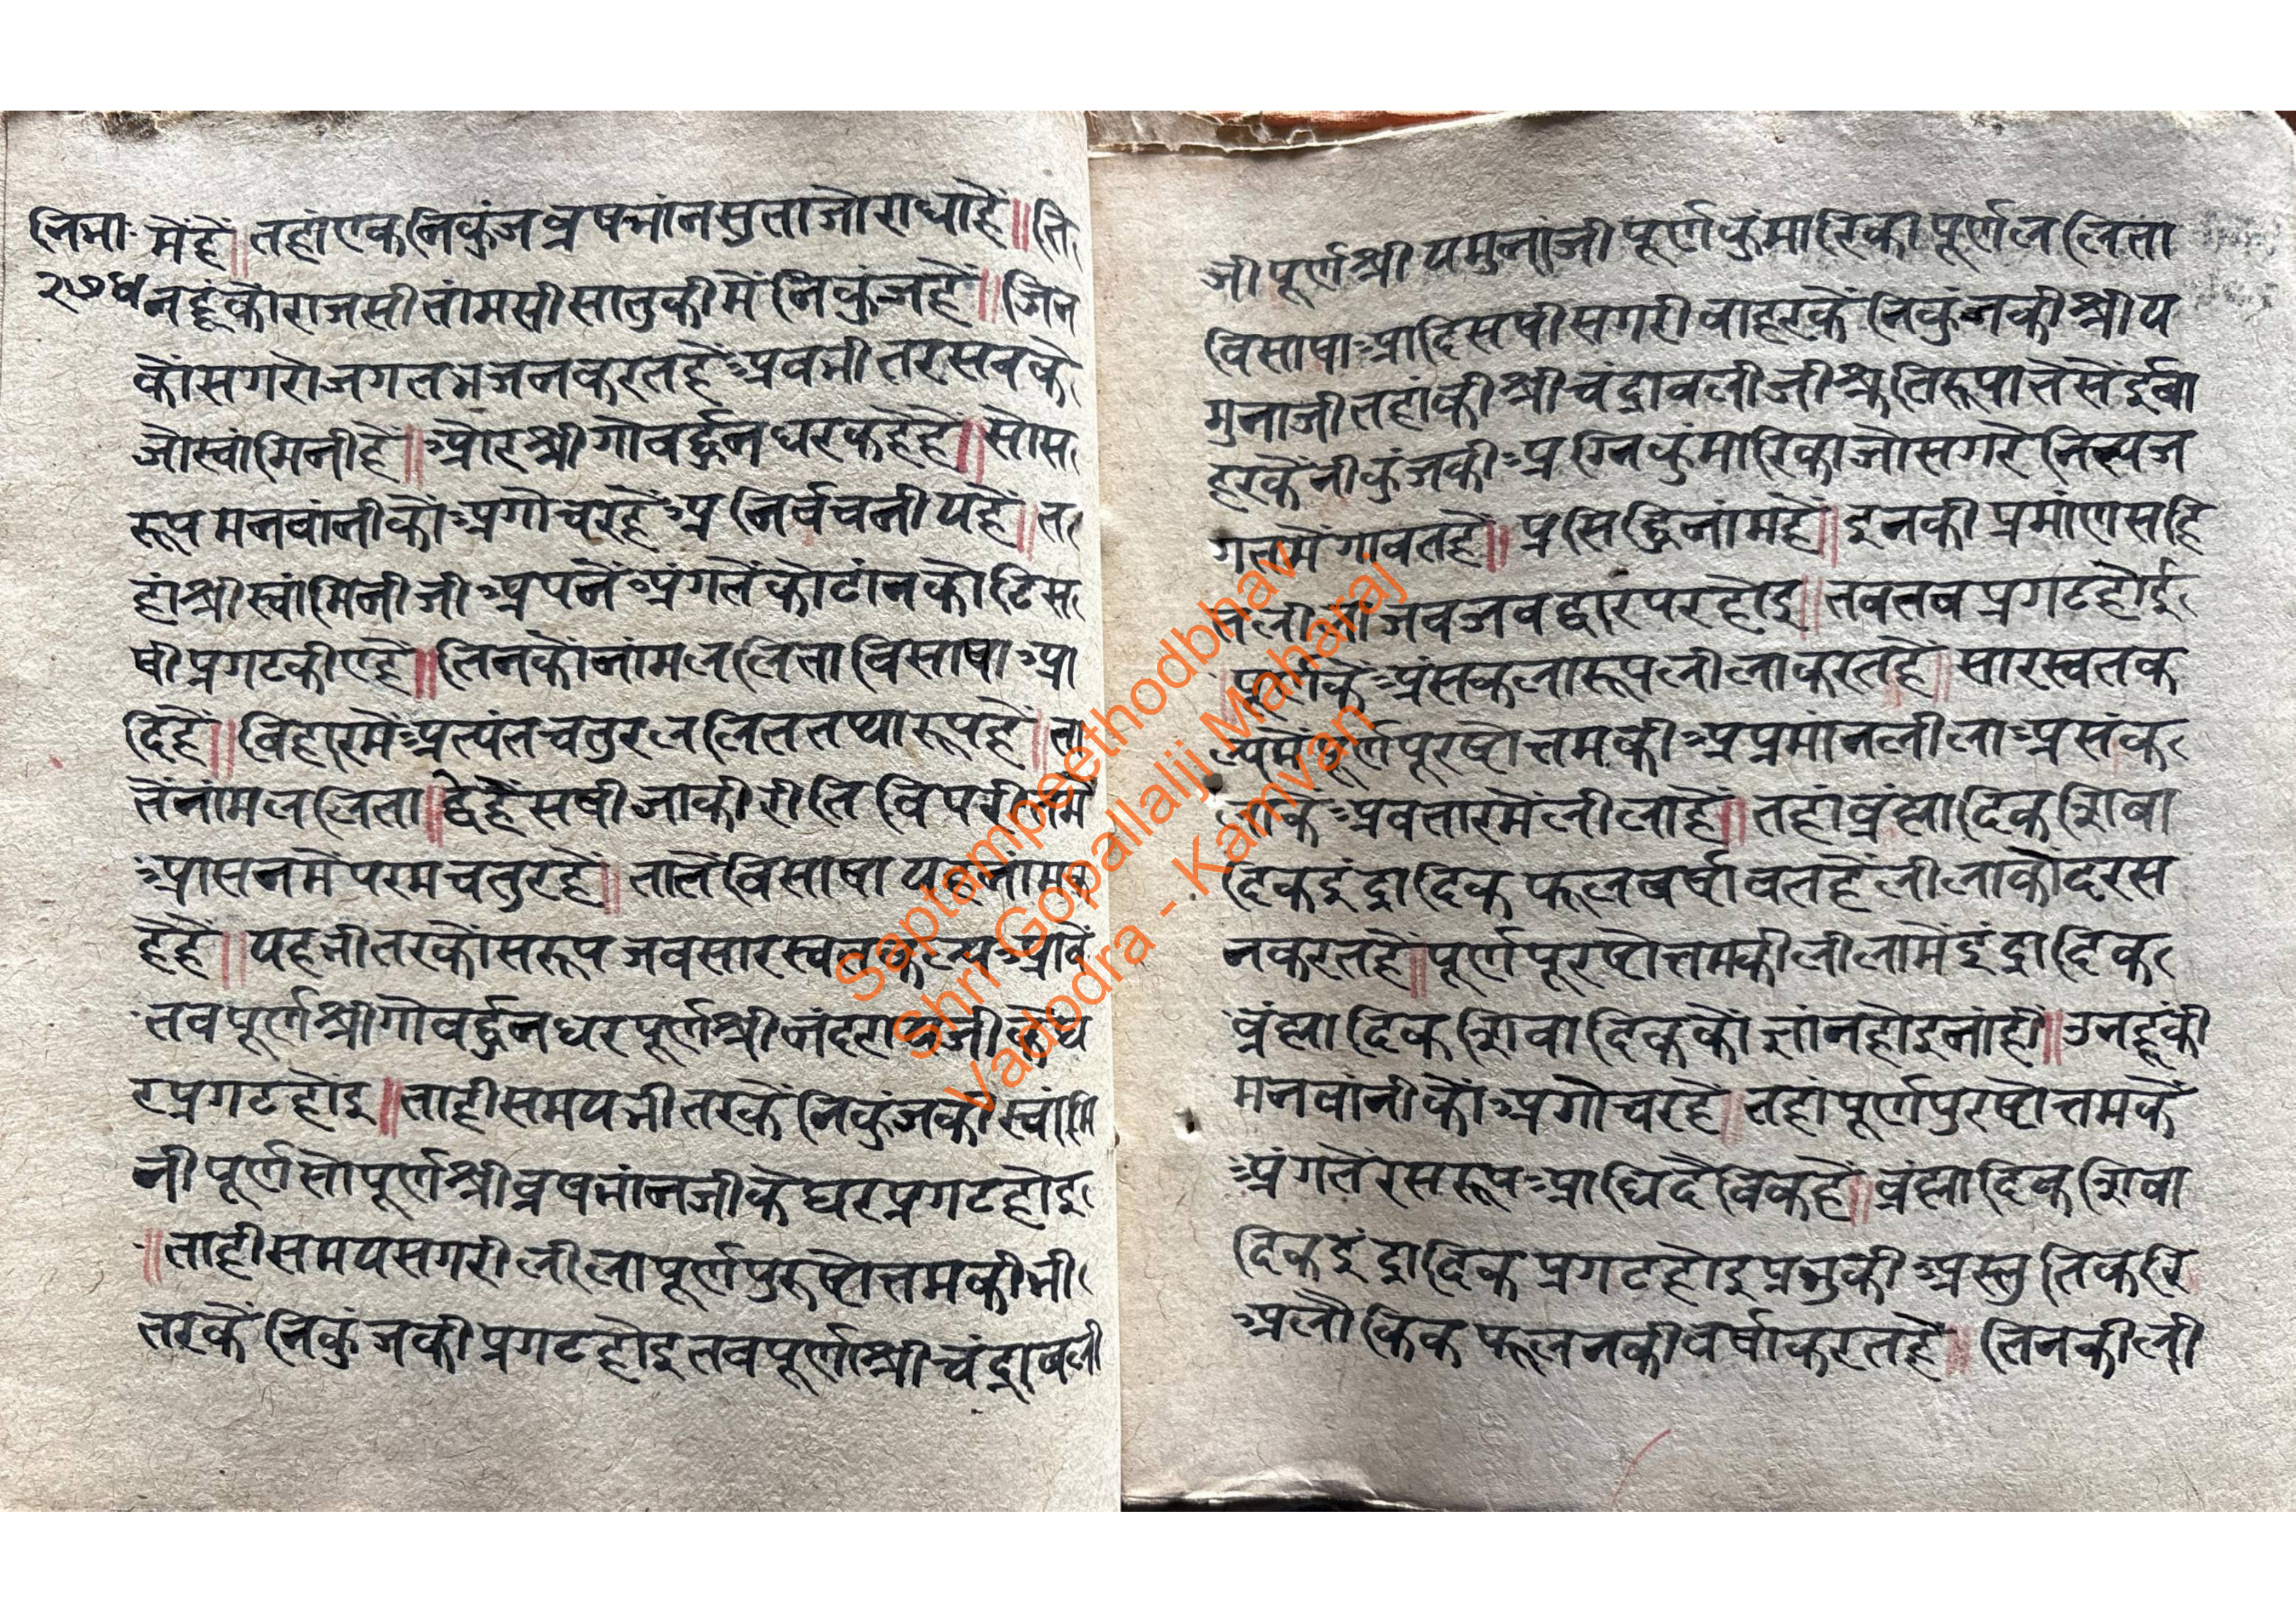 निमा
२७४
मेंहें॥ तहांएकनिकुंजव्रषभांनसुताजोराधाहें॥ति
नहूंकौराजसीतांमसीसातुकीमें निकुंजहें॥जिन
कौंसगरोजगतभजनकरतहेंअवभीतरसवके
जोस्वांमिनीहें॥औरश्रीगोवर्द्धनधरकहेहें॥सोस
रूपमनवांनीकौंअगोचरहेंअनिर्वचनीयहें॥त
हांश्रीस्वांमिनीजीअपनेंअंगतेंकोटांनकोटिस
षीप्रगटकीएहें॥तिनकौनांमललिताविसाषाआ
दिहें॥विहारमेंअत्यंतचतुरललिततथारूपहें॥ता
तेंनांमललिता॥द्वेहेंसषीजाकीरीतिविपरीतमें
आसनमेंपरमचतुरहें॥तातेंविसाषायहनांमक
हेहें॥यहभीतरकौसरूपजवसारस्वतकल्पआवें
तवपूर्णश्रीगोवर्द्धनधरपूर्णश्रीनंदरायजीकेंघ
रप्रगटहोइ॥ताहीसमयभीतरकेंनिकुंजकीस्वांमि
नीपूर्णसोपूर्णश्रीव्रषभांनजीकेघरप्रगटहोइ
॥ताहीसमयसगरीलीलापूर्णपुरुषोत्तमकीभी
तरकेंनिकुंजकीप्रगटहोइतवपूर्णश्रीचंद्रावली
जीपूर्णश्रीयमुनांजीपूर्णकुंमारिकापूर्णललिता
विसाषाआदिसषीसगरीवाहरकेंनिकुंजकीश्रीय
मुनाजीतहांकीश्रीचंद्रावलीजीश्रुतिरूपातेसेंईबा
हरकेंनीकुंजकीअग्निकुंमारिकाजोसगरेनित्यज
गतमेंगावतहें॥प्रसिद्धिनांमहें॥इनकीप्रमांणसहि
तलीलाजवजवद्वापरहोइ॥तवतवप्रगटहोई
॥पूर्णकेंअंसकलारूपलीलाकरतहें॥सारस्वतक
ल्पमेंपूर्णपूरषोत्तमकीअप्रमांनलीलाअसंक
लाकेंअवतारमेंलीलाहें॥तहांव्रंह्मादिकशिवा
दिकइंद्रादिकफलबर्षावतहेंलीलाकौदरस
नकरतहें॥पूर्णपूरषोत्तमकीलीलामेंइंद्रादिक
व्रंह्मादिकशिवादिककौंज्ञांनहोइनांहीं॥उनहूंकी
मनवांनीकौंअगोचरहें॥तहांपूर्णपुरषोत्तमकें
अंगतेंरसरूपआधिदैविकहें॥व्रंह्मादिकशिवा
दिकइंद्रादिकप्रगटहोइप्रभुकीअस्तुतिकरि
अलौकिकफूलनकीवर्षाकरतहें॥तिनकीली
Saptampeethodbhav
Shri Gopallalji Maharaj
Vadodra - Kamvan